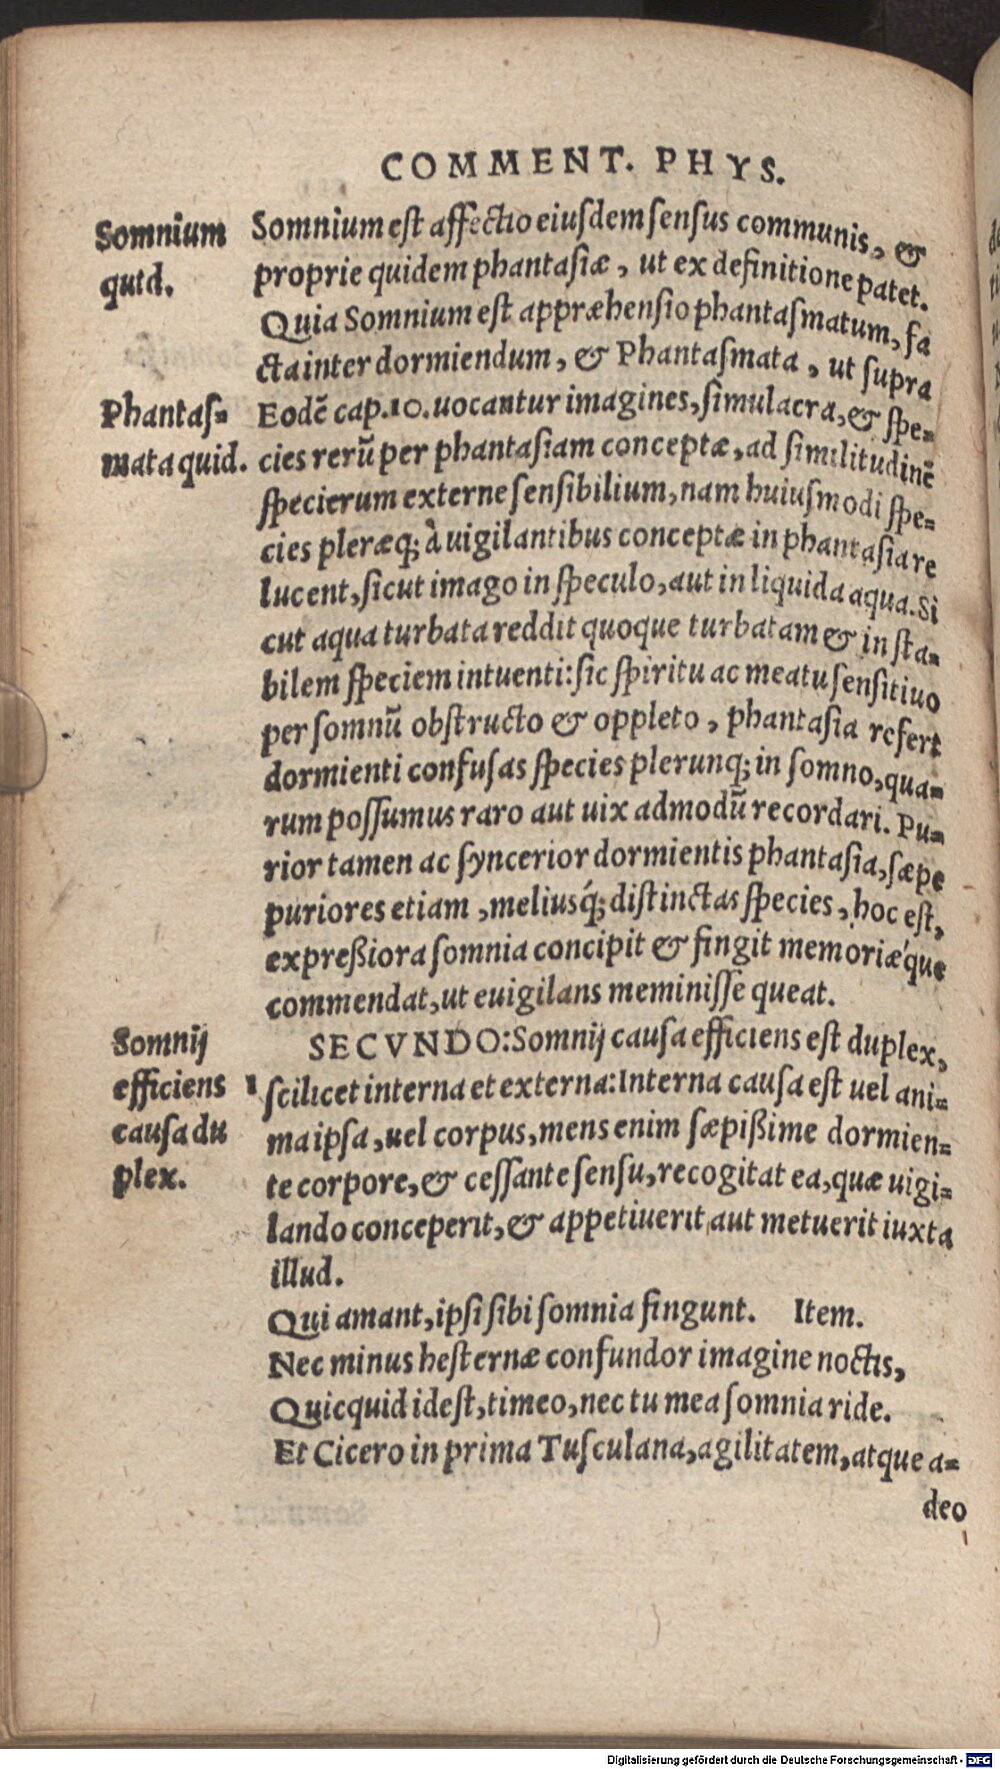 COMMENT. PHYS.
Somnium
quid.
Somnium est affectio eiusdem sensus communis, &
proprie quidem phantasiæ, ut ex definitione patet.
Quia Somnium est appræhensio phantasmatum, fa
cta inter dormiendum, & Phantasmata, ut supra
Phantas-
mata quid.
Eodē cap.10. uocantur imagines, simulacra, & spe-
cies rerū per phantasiam conceptæ, ad similitudinē
specierum externe sensibilium, nam huiusmodi spe-
cies pleræq; à uigilantibus conceptæ in phantasia re
lucent, sicut imago in speculo, aut in liquida aqua. Si
cut aqua turbata reddit quoque turbatam & insta-
bilem speciem intuenti: sic spiritu ac meatu sensitiuo
per somnū obstructo & oppleto, phantasia refert
dormienti confusas species plerunq; in somno, qua-
rum possumus raro aut uix admodū recordari. Pu-
rior tamen ac syncerior dormientis phantasia, sæpe
puriores etiam, meliusq́; distinctas species, hoc est,
expreßiora somnia concipit & fingit memoriæ'que
commendat, ut euigilans meminisse queat.
Somnij
efficiens
causa du
plex.
SECVNDO: Somnij causa efficiens est duplex,
1 scilicet interna et externa: Interna causa est uel ani-
ma ipsa, uel corpus, mens enim sæpißime dormien-
te corpore, & cessante sensu, recogitat ea, quæ uigi-
lando conceperit, & appetiuerit aut metuerit iuxta
illud.
Qui amant, ipsi sibi somnia fingunt. Item.
Nec minus hesternæ confundor imagine noctis,
Quicquid id est, timeo, nec tu mea somnia ride.
Et Cicero in prima Tusculana, agilitatem, atque a-
deo
Digitalisierung gefördert durch die Deutsche Forschungsgemeinschaft - DFG